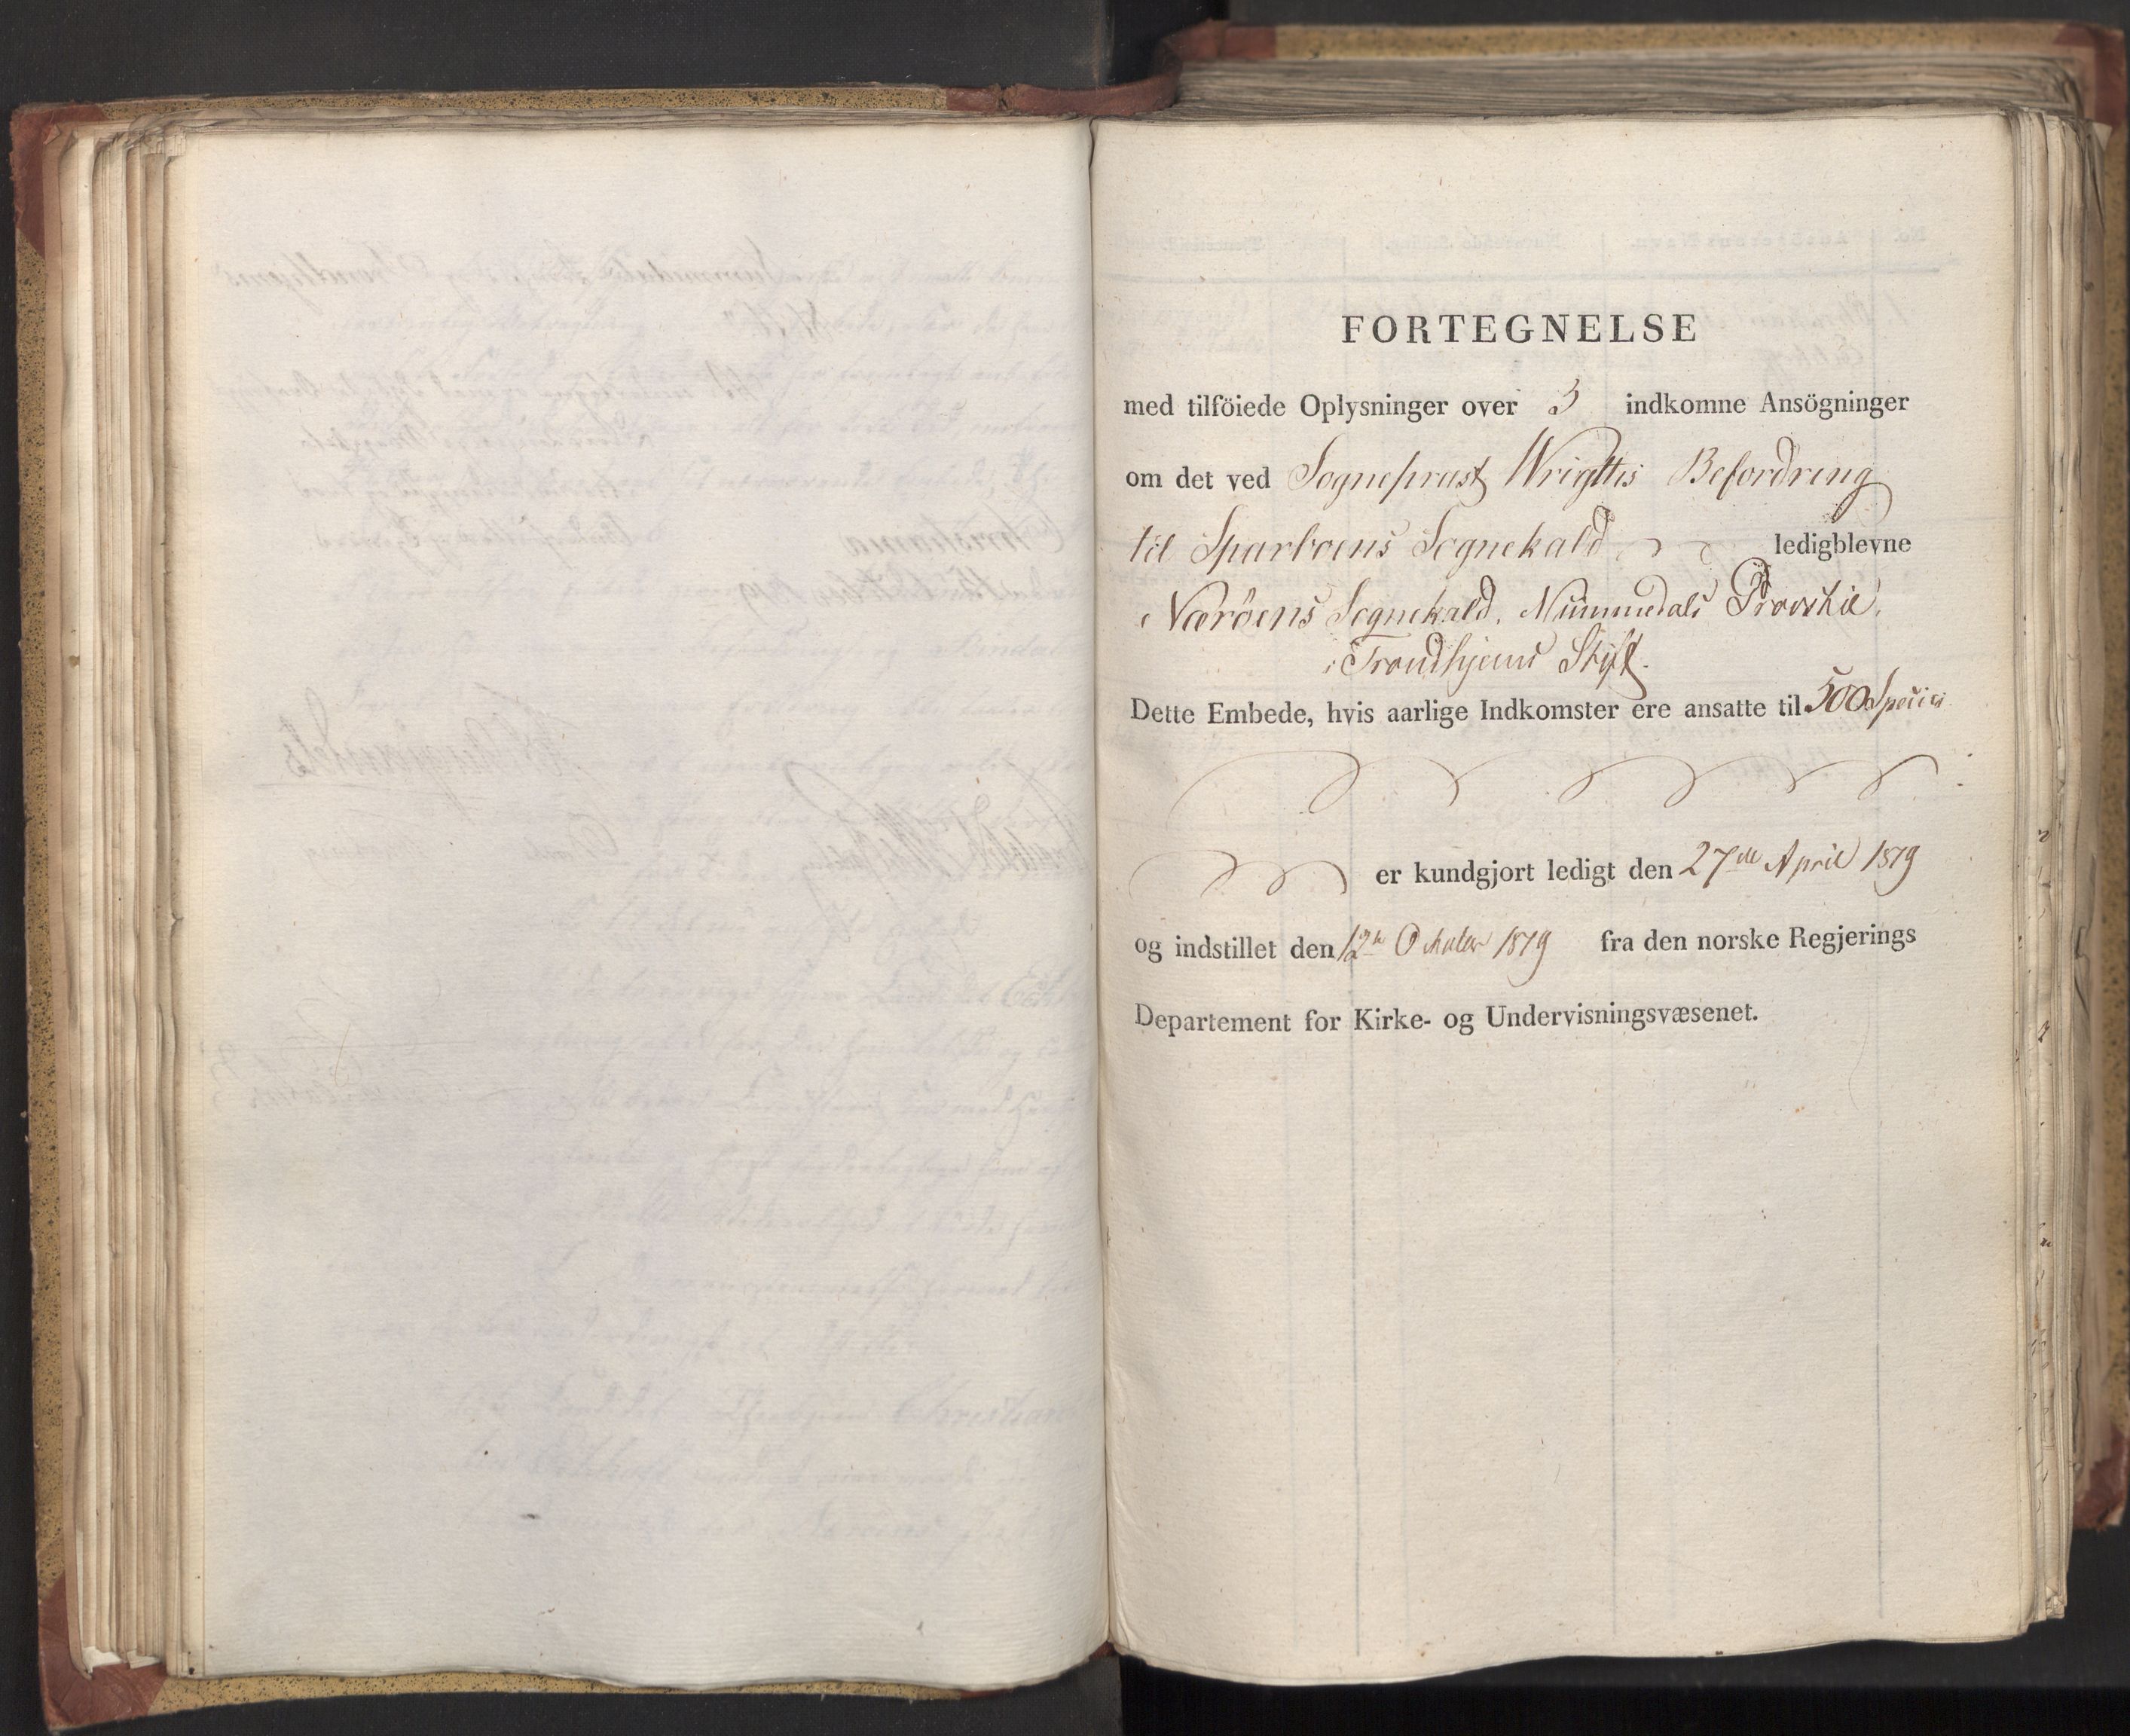 FORTEGNELSE
med tilföiede Oplysninger over 3 indkomne Ansögninger
om det ved Sogneprest Wrigths Befordring
til Sparboens Sognekald ledigblevne
Nærøens Sognekald, Nummedals Provstie,
i Trondhjems Stift.
Dette Embede, hvis aarlige Indkomster ere ansatte til 500 Specier
er kundgjort ledigt den 27de April 1819
og indstillet den 12te October 1819 fra den norske Regjerings
Departement for Kirke- og Undervisningsvæsenet.